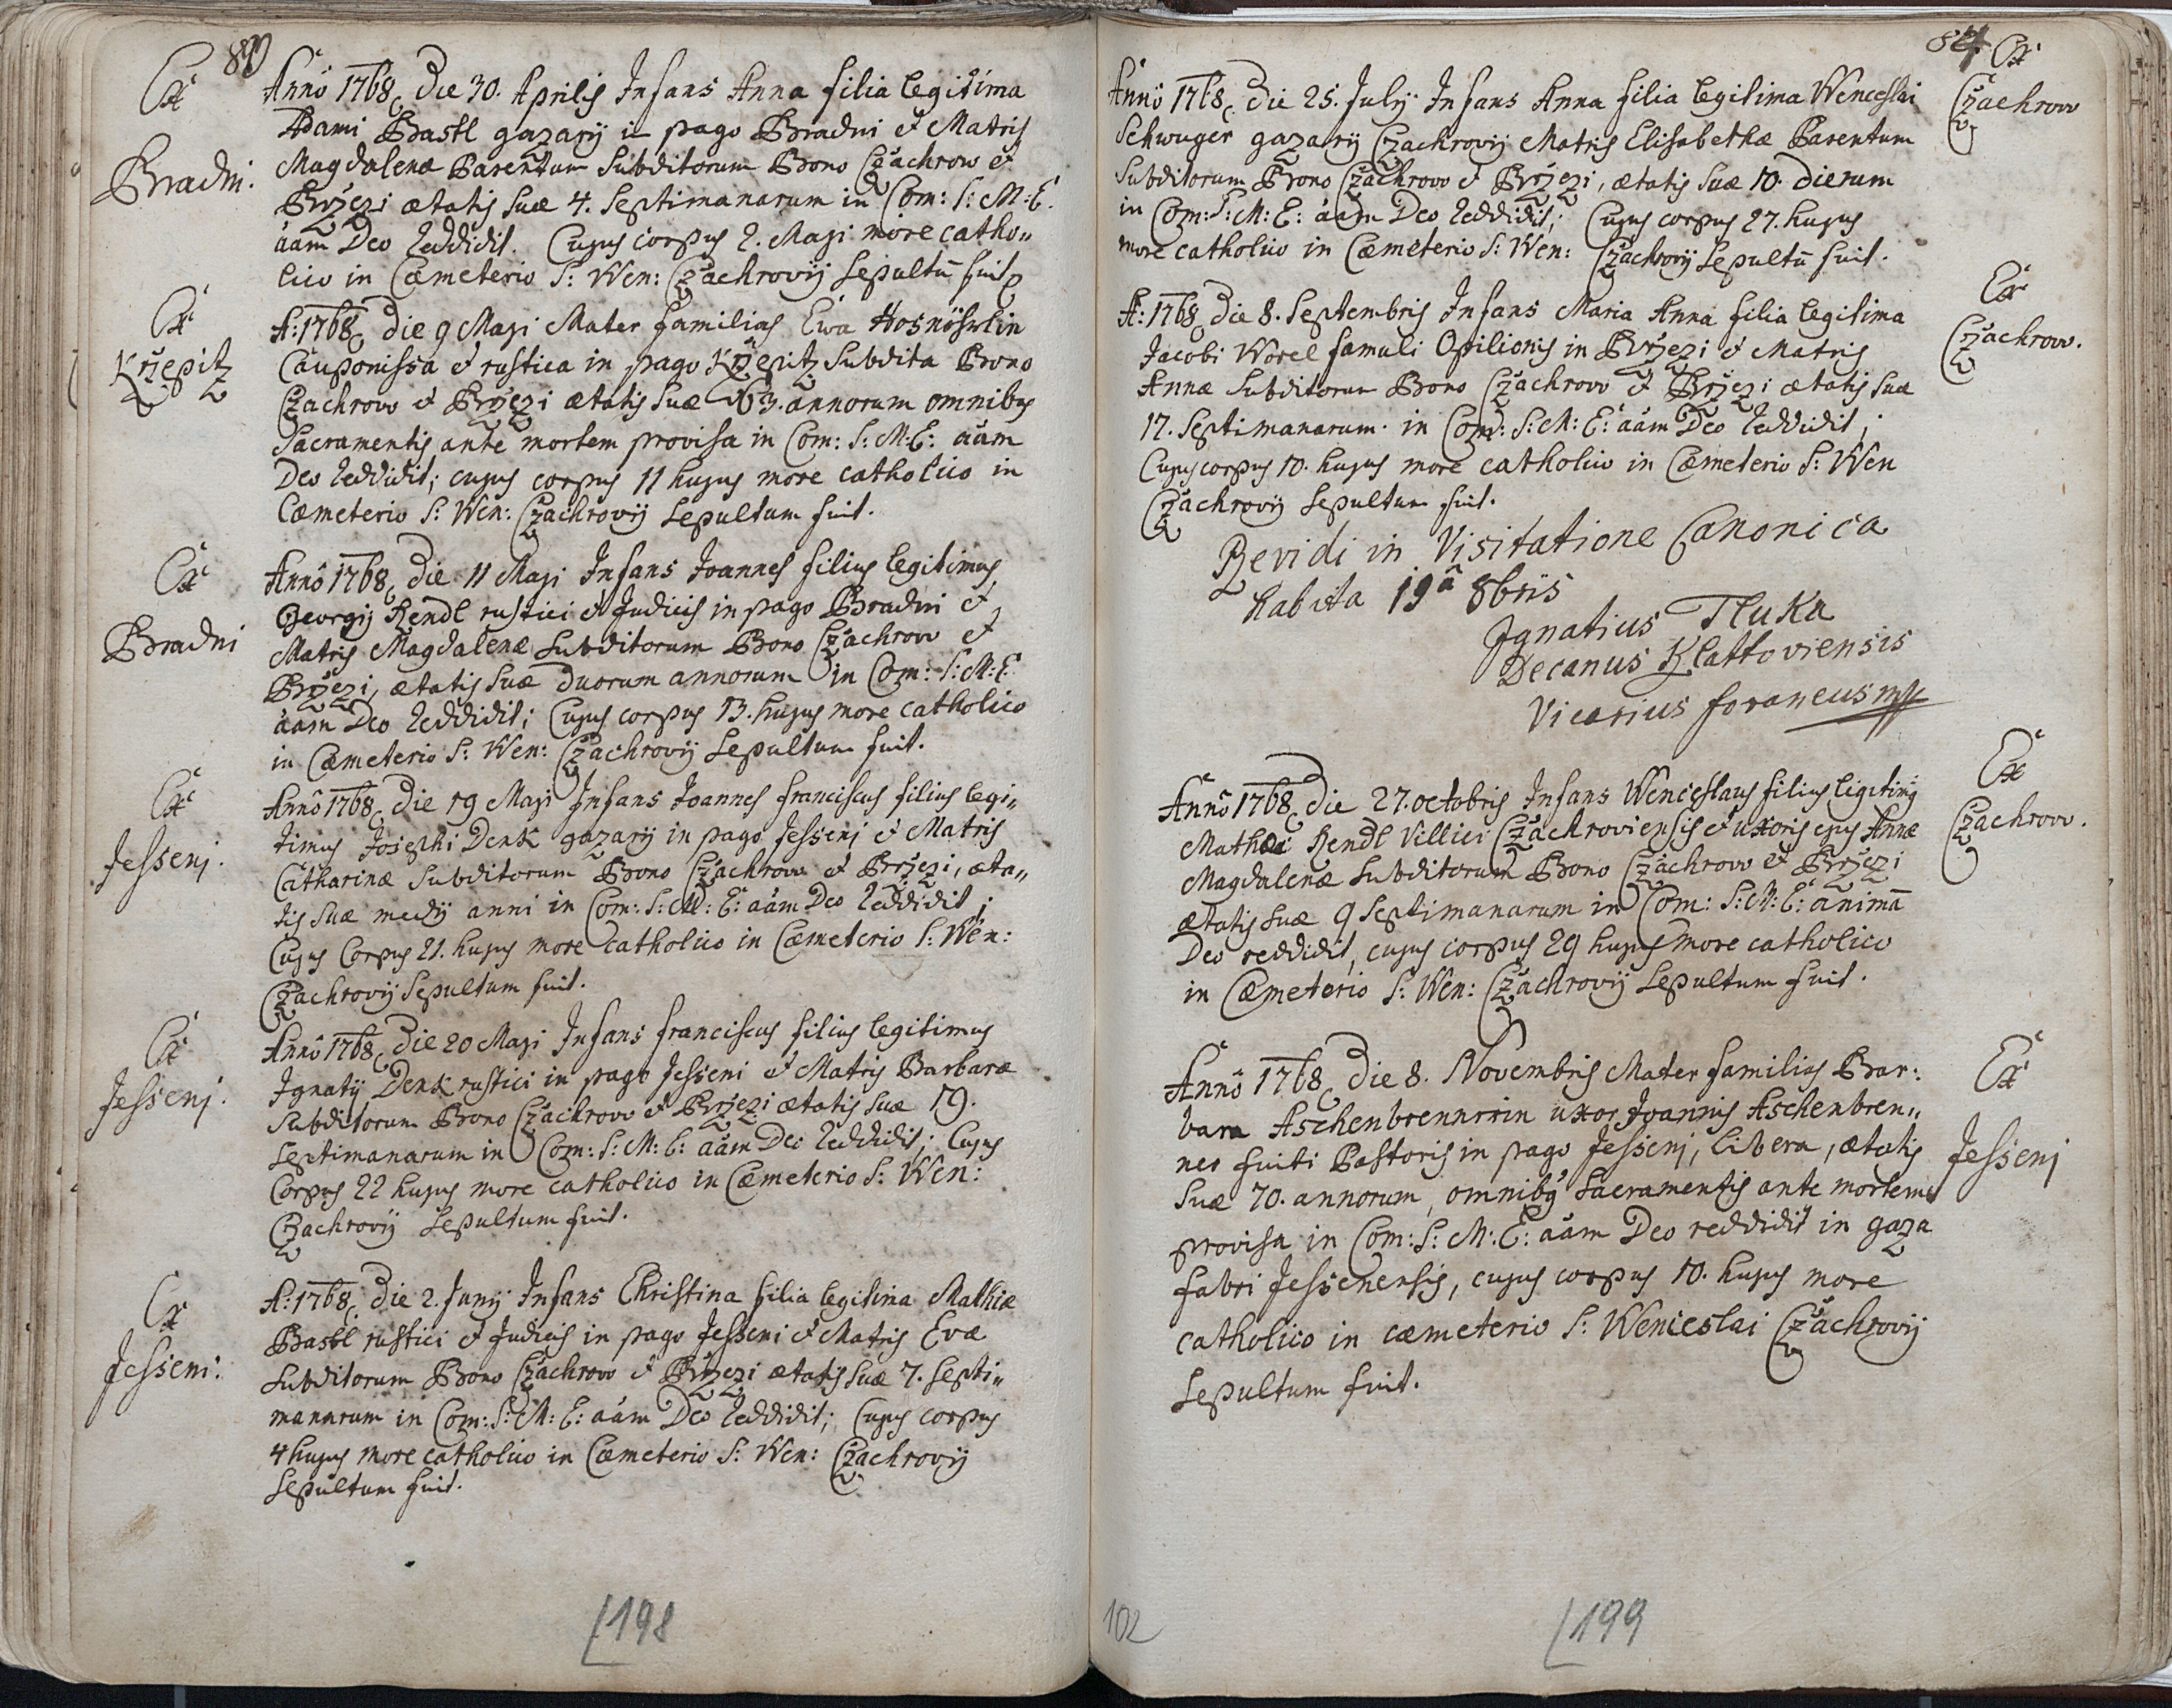 Ex
Bradni.
Annô 1768 Die 30. Aprilis Infans Anna filia legitima
Adami Bastl gazarij in pago Bradni et Matris
Magdalenæ Parentum Subditorum Bono Czachrow et
Brzezi ætatis suæ 4. Septimanarum in Com: S: M: E.
aãm Deo reddidit. Cujus corpus 2. Maji more catho„
lico in Cæmeterio S: Wen: Czachrovij Sepultũ fuit
Ex
Krzepitz
A: 1768 Die 9 Maji Mater familias Ewa
Cauponissa et rustica in pago Krzepitz Subdita Bono
Czachrow et Brzezi ætatis suæ 63. annorum omnibus
Sacramentis ante mortem provisa in Com: S: M: E: aãm
Deo reddidit; cujus corpus 11 hujus more catholico in
Cæmeterio S: Wen: Czachrovij Sepultum fuit.
Ex
Bradni
Annô 1768 Die 11 Maji Infans Joannes filius legitimus
Georgij Rendl rustici et Judicis in pago Bradni et
Matris Magdalenæ Subditorum Bono Czachrow et
Brzezi, ætatis suæ duorum annorum in Com: S: M: E
aãm Deo reddidit; Cujus corpus 13. hujus more catholico
in Cæmeterio S: Wen: Czachrovij Sepultum fuit.
Ex
Jessenj.
Annô 1768 Die 19 Maji Infans Joannes franciscus filius legi„
timus Josephi Denk gazarij in pago Jessenj et Matris
Catharinæ Subditorum Bono Czachrow et Brzezi, æta„
tis suæ medij anni in Com: S: M: E: aãm Deo reddidit;
Cujus Corpus 21. hujus more catholico in Cæmeterio S: Wen:
Czachrovij Sepultum fuit.
Ex
Jessenj.
Annô 1768 Die 20 Maji Infans franciscus filius legitimus
Ignatij Denk rustici in pago Jesseni et Matris Barbaræ
Subditorum Bono Czachrow et Brzezi ætatis suæ 19.
Septimanarum in Com: S: M: E: aãm Deo reddidit; Cujus
Corpus 22 hujus more catholico in Cæmeterio S: Wen:
Czachrovij Sepultum fuit.
Ex
Jesseni.
A: 1768 Die 2. Junij Infans Christina filia legitima Mathiæ
Bastl rustici et Judicis in pago Jesseni et Matris Evæ
Subditorum Bono Czachrow et Brzezi ætatis suæ 7. Septi„
manarum in Com: S: M: E: aãm Deo reddidit; Cujus corpus
4 hujus more catholico in Cæmeterio S: Wen: Czachrovij
Sepultum fuit.
198
84
Ex
Czachrow
Annô 1768 Die 25. Julij Infans Anna filia legitima Wenceslai
Schwuger gazarij Czachrovij Matris Elisabethæ Parentum
Subditorum Bono Czachrow et Brzezi, ætatis suæ 10. dierum
in Com: S: M: E: aãm Deo reddidit; Cujus corpus 27. hujus
more catholico in Cæmeterio S: Wen: Czachrovij Sepultũ fuit.
Ex
Czachrow.
A: 1768 Die 8. Septembris Infans Maria Anna filia legitima
Jacobi Worel famuli Opilionis in Brzezi et Matris
Annæ Subditorum Bono Czachrow et Brzezi ætatis suæ
17. Septimanarum in Com: S: M: E: aãm Deo reddidit;
Cujus corpus 10. hujus more catholico in Cæmeterio S: Wen
Czachrovij Sepultum fuit.
Revidi in Visitatione Canonica
habita 19â 8bris
Ignatius Tluka
Decanus Klattoviensis
Vicarius foraneus mp
Ex
Czachrow.
Annô 1768 Die 27. octobris Infans Wenceslaus filius legitimus
Mathæi Rendl Villici Czachroviensis et uxoris ejus Annæ
Magdalenæ Subditorum Bono Czachrow et Brzezi
ætatis suæ 9 Septimanarum in Com: S: M: E: animã
Deo reddidit, cujus corpus 29 hujus more catholico
in Cæmeterio S: Wen: Czachrovij Sepultum fuit.
Ex
Jessenj
Annô 1768 Die 8. Novembris Mater familias Bar:
bara Aschenbrennrin uxor Joannis Aschenbren„
ner fuiti Pastoris in pago Jessenj, libera, ætatis
suæ 70. annorum, omnibus Sacramentis ante mortem
provisa in Com: S: M: E: aãm Deo reddidit in gaza
fabri Jessenensis, cujus corpus 10. hujus more
catholico in cæmeterio S: Wenceslai Czachrovij
Sepultum fuit.
102
199